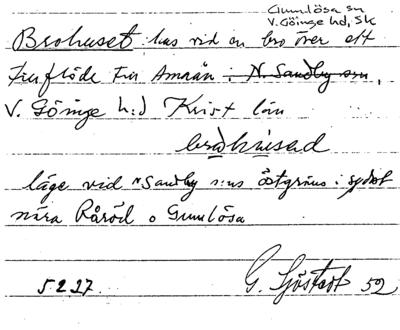 Gumlösa sn
V. Göinge hd, Sk
Brohuset hus vid en bro över ett
tillflöde till Almaån i N. Sandby sn,
V. Göinge h:d Krist län
läge vid N Sandby s:ns östgräns i sydost
nära Röröd o Gumlösa
5 2 27. G. Sjöstedt 52